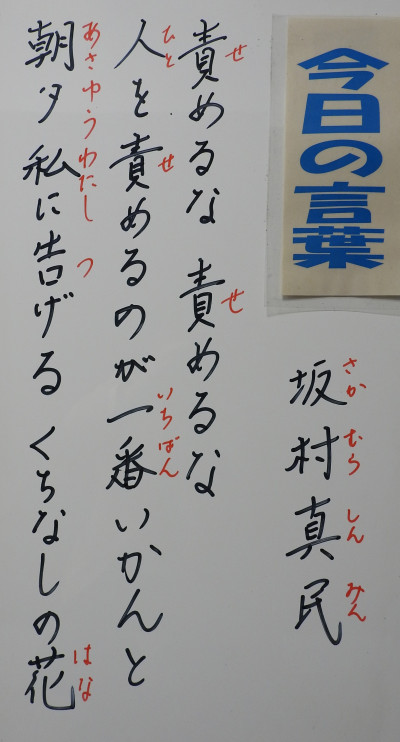 今日の言葉
坂村真民
さかむらしんみん
責めるな 責めるな
せ せ
人を責めるのが一番いかんと
ひと せ いちばん
朝夕私に告げる くちなしの花
あさゆうわたし つ はな